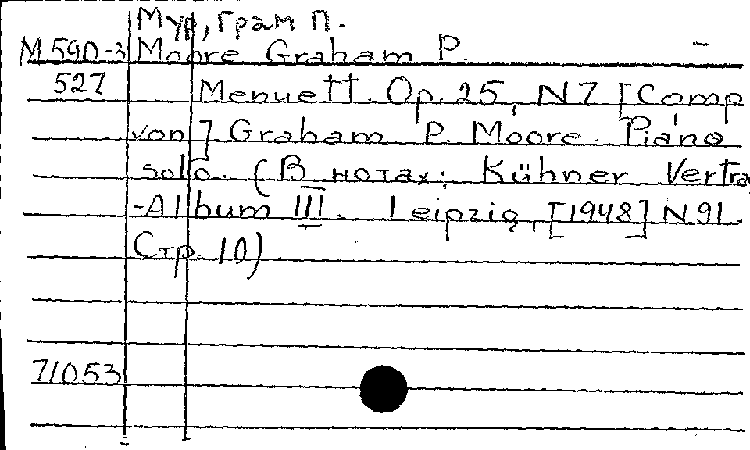 Мур, Грам П.
М590-3 Moore Graham P.
527 Menuett. Op. 25, N7 [Comp
von] Graham P. Moore. Piano
solo. (В нотах: Kühner Vertra
-Album III. Leipzig, [1948] N91.
Стр. 10)
71053